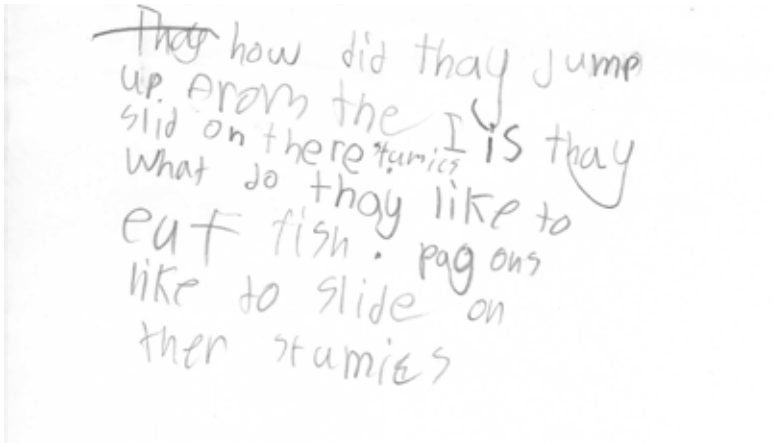 Thay how did thay jump
up from the I is thay
slid on there stumics
What do thay like to
eat fish. pagons
like to slide on
ther stumies